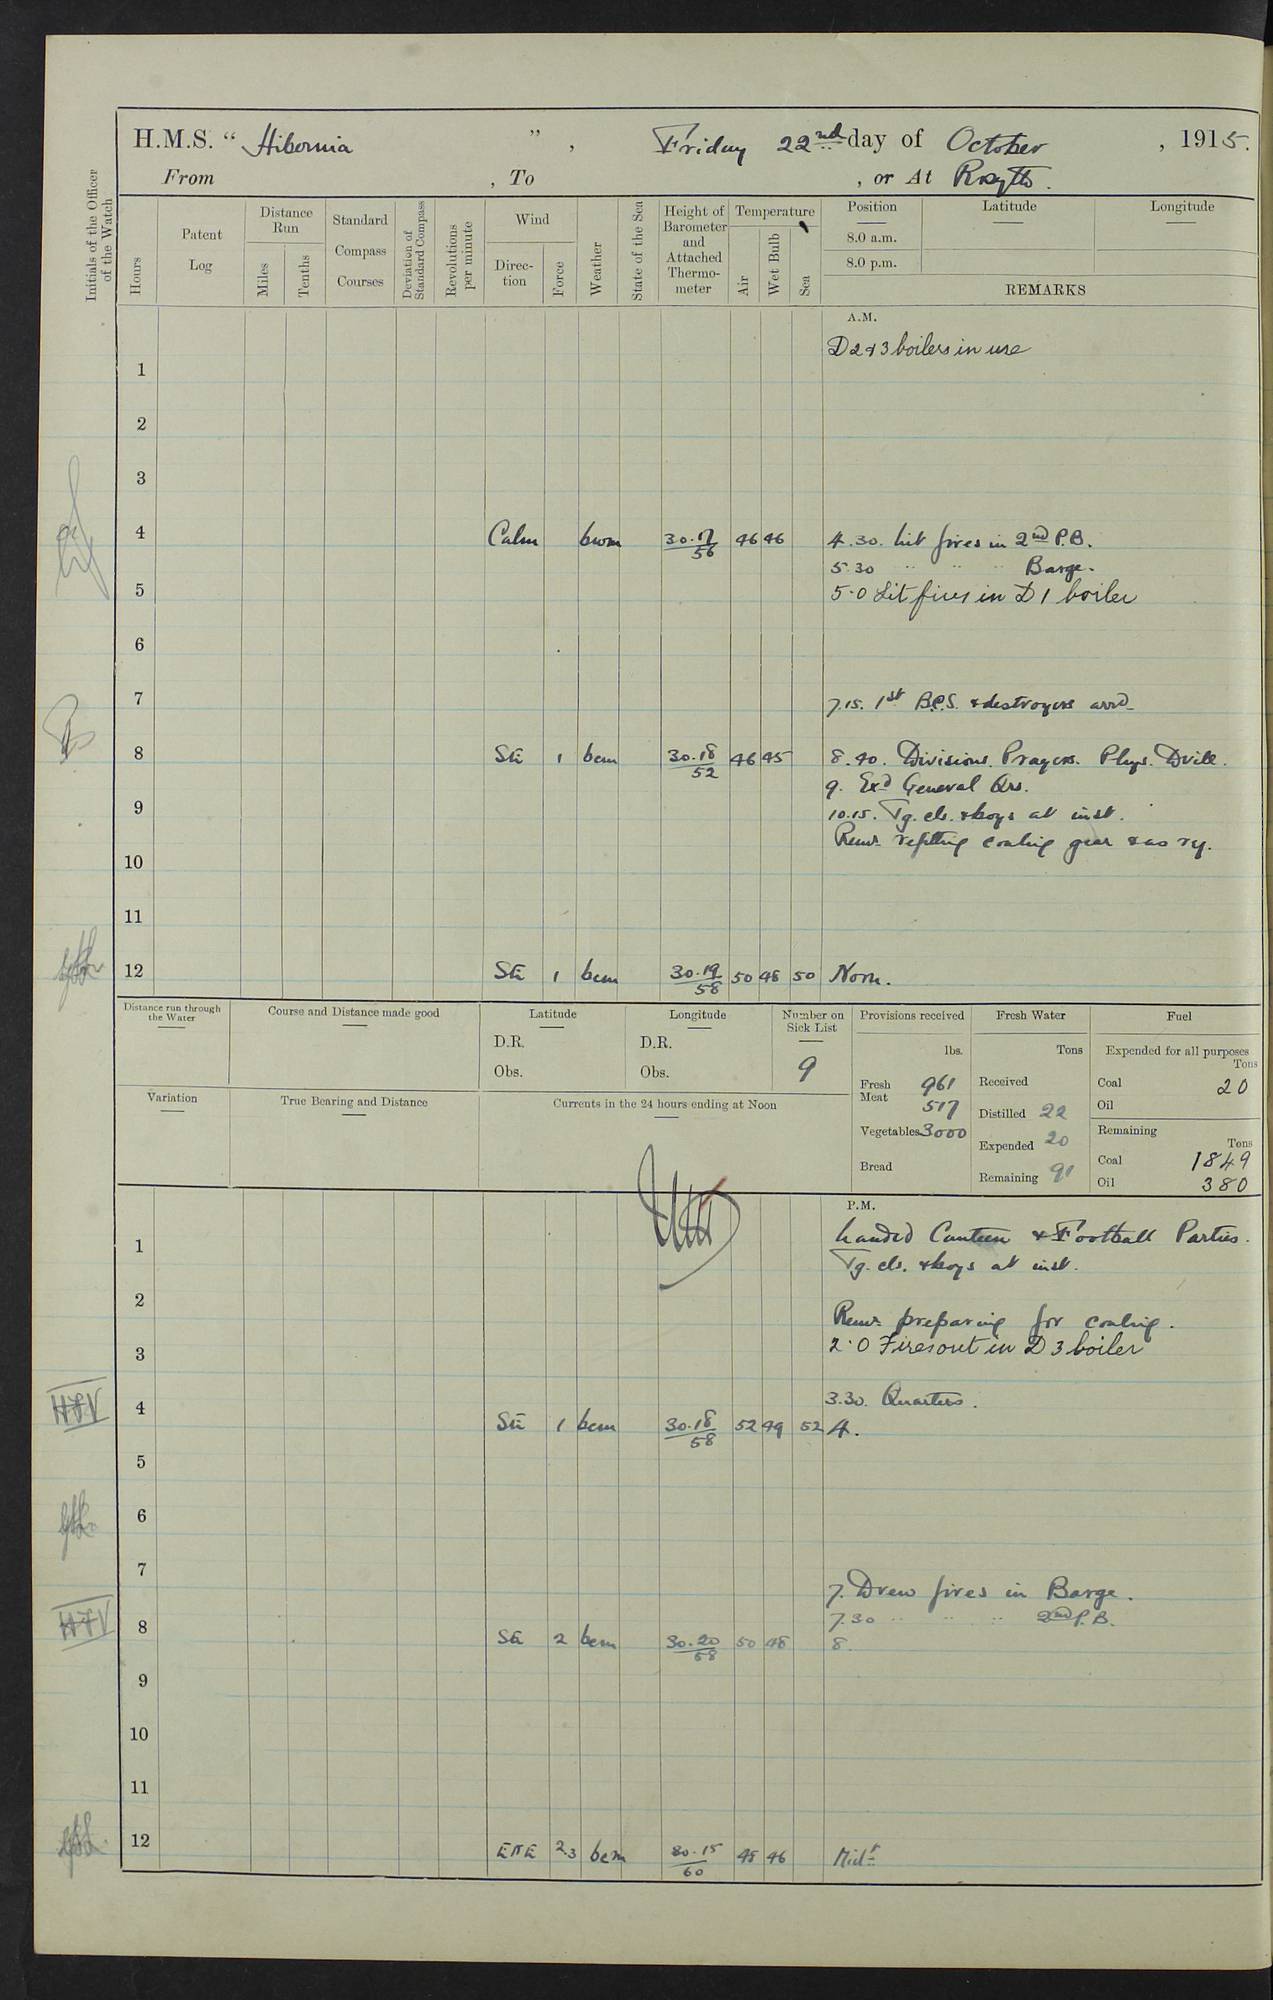 H.M.S. “ Hibernia ” , Friday 22nd day of October , 1915.
From , To , or At Rosyth.
Initials of the Officer of the Watch
Hours
Patent Log
Distance Run
Miles
Tenths
Standard Compass Courses
Deviation of Standard Compass
Revolutions per minute
Wind
Direc-tion
Force
Weather
State of the Sea
Height of Barometer and Attached Thermo-meter
Temperature
Air
Wet Bulb
Sea
Position
8.0 a.m.
8.0 p.m.
Latitude
Longitude
REMARKS
A.M.
D 2 & 3 boilers in use
1
2
3
4 Calm bcm 30.17/56 46 46 4.30. Lit fires in 2nd P.B.
5.30 " " " Barge.
5 5.0 Lit fires in D 1 boiler
6
7 7.15. 1st B.C.S. & destroyers arrd.
8 SE 1 bcm 30.18/52 46 45 8.40. Divisions. Prayers. Phys. Drill.
9. Exd General Qrs.
9 10.15. Tg. cls. & boys at inst.
Remr. refitting coaling gear & as ry.
10
11
12 SE 1 bcm 30.19/58 50 48 50 Noon.
Distance run through the Water
Course and Distance made good
Latitude
D.R.
Obs.
Longitude
D.R.
Obs.
Number on Sick List
9
Provisions received
lbs.
Fresh Meat 961
517
Vegetables 3000
Bread
Fresh Water
Tons
Received
Distilled 22
Expended 20
Remaining 91
Fuel
Expended for all purposes
Tons
Coal 20
Oil
Remaining
Tons
Coal 1849
Oil 380
Variation
True Bearing and Distance
Currents in the 24 hours ending at Noon
P.M.
Landed Canteen & Football Parties.
1 Tg. cls. & boys at inst.
2 Remr. preparing for coaling.
3 2.0 Fires out in D 3 boiler
3.30. Quarters.
HFV
4 SE 1 bcm 30.18/58 52 49 52 4.
5
6
7 7. Drew fires in Barge.
7.30 " " " 2nd P.B.
HFV
8 SE 2 bcm 30.20/58 50 48 8.
9
10
11
12 ENE 2.3 bcm 30.15/60 48 46 Midt.